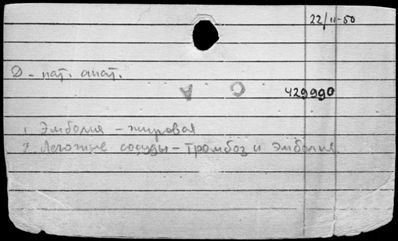 22/II-50
Д - пат. анат.
429990
1. Эмболия - жировая
2. Легочные сосуды - тромбоз и эмболия